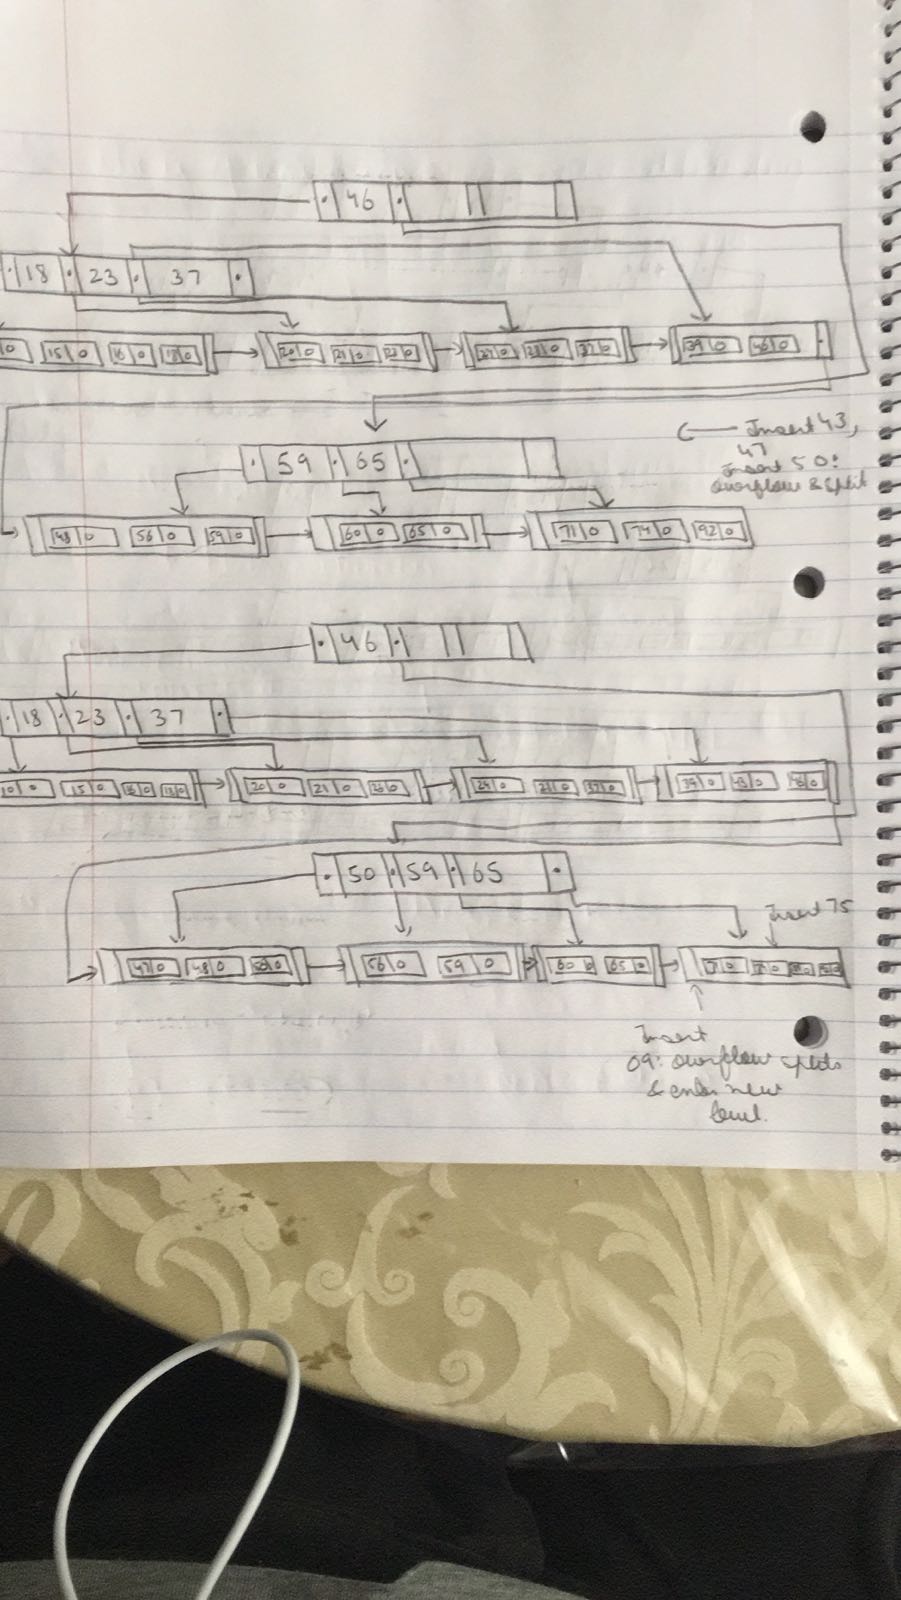 46
18 23 37
0 15 0 16 0 18 0 20 0 21 0 23 0 0 0 37 0 39 0 46 0
59 65
Insert 43,
47
Insert 50:
overflow & split
48 0 56 0 59 0 60 0 65 0 71 0 74 0 92 0
46
18 23 37
10 0 15 0 16 0 18 0 20 0 21 0 0 24 0 0 37 0 39 0 43 0 46 0
50 59 65
Insert 75
47 0 48 0 50 0 56 0 59 0 60 0 65 0
Insert
09: overflow splits
& enters new
level.